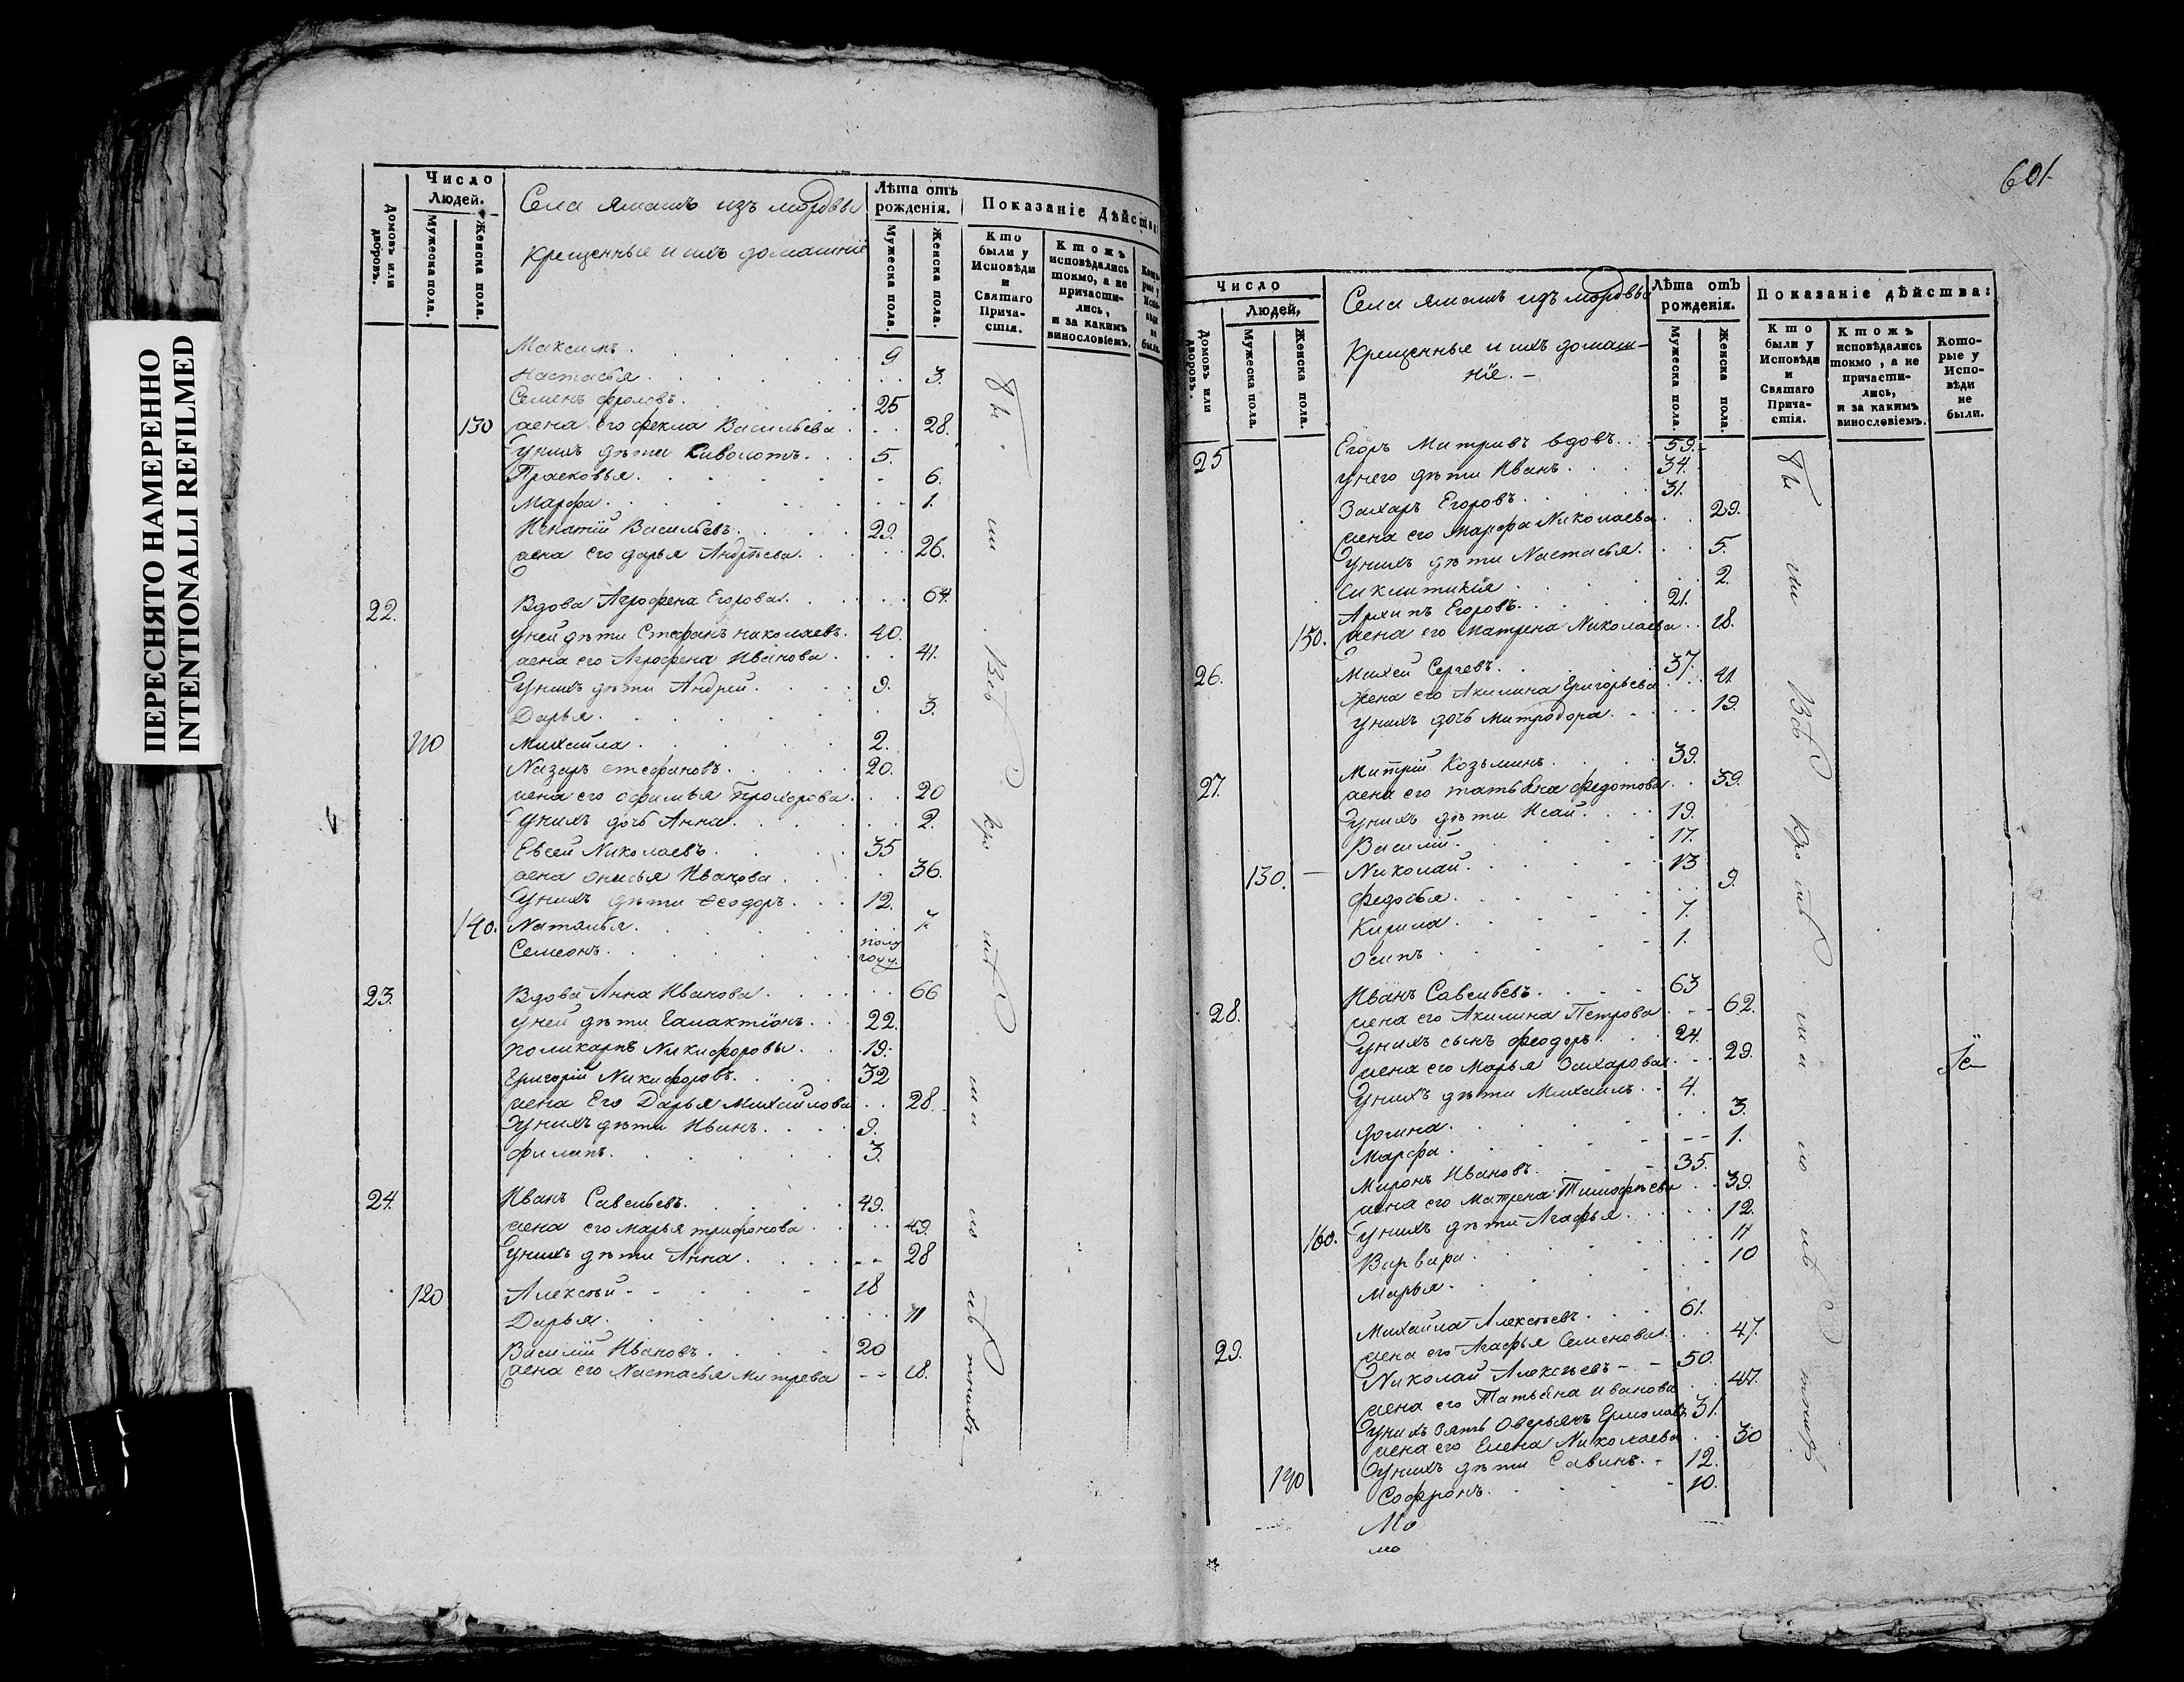 ПЕРЕСНЯТО НАМЕРЕННО
INTENTIONALLI REFILMED
Домовъ или дворовъ.
Число Людей.
Мужеска пола.
Женска пола.
Села Ямашъ изъ мордвы
Крещенныя и ихъ домашнїе
Лѣта отъ рожденїя.
Мужеска пола.
Женска пола.
Показанїе Дѣйства:
Кто были у Исповѣди и Святаго Прича-стїя.
Ктожъ исповѣдались токмо, а не причасти-лись, и за какимъ винословїемъ.
Максимъ 9
Настасья 3.
Семенъ Фроловъ 25
130 жена его Фекла Васильева 28.
У нихъ дѣти 5.
Прасковья 6.
Марфа 1.
Игнатїй Васильевъ 29.
жена его Дарья Андрѣева 26.
22. Вдова Агрофена Егорова 64.
У ней дѣти Стефанъ Николаевъ 40.
жена его Агрофена Иванова 41.
У нихъ дѣти Андрей 9.
Дарья 3.
110 Михаила 2.
Назаръ Стефановъ 20.
жена его Офимья Прохорова 20
У нихъ дочь Анна 2.
Евсей Николаевъ 35
жена Онисья Иванова 36.
У нихъ дѣти Ѳеодоръ 12.
140. Наталья 7
Семеонъ полу году
23. Вдова Анна Иванова 66
У ней дѣти Галактїонъ 22.
Поликарпъ Никифоровы 19.
Григорїй Никифоровъ 32
жена Его Дарья Михайлова 28.
У нихъ дѣти Иванъ 9.
Филипъ 3.
24. Иванъ Савельевъ 49.
жена его Марья Трифонова 49.
У нихъ дѣти Анна 28
120 Алексѣй 18
Дарья 11
Василїй Ивановъ 20
жена его Настасья Митрева 18.
601
Домовъ или дворовъ.
Число Людей,
Мужеска пола.
Женска пола.
Села Ямашъ изъ мордвы
Крещенныя и ихъ домаш-
нїе. –
Лѣта отъ рожденїя.
Мужеска пола.
Женска пола.
Показанїе дѣйства:
Кто были у Исповѣди и Святаго Прича-стїя.
Ктожъ исповѣдались токмо, а не причасти-лись, и за какимъ винословїемъ.
Кото-рые у Испо-вѣди не были.
25 Егоръ Митривъ вдовъ 59.
У него дѣти Иванъ 34.
Захаръ Егоровъ 31.
жена его Марфа Николаева 29.
У нихъ дѣти Настасья 5.
2.
Архипъ Егоровъ 21.
150. жена его Матрена Николаева 18.
26. Михей Сергевъ 37.
жена его Акилина Григорьева 41.
У нихъ дочь Митродора 19.
27. Митрїй Козьминъ 39.
жена его Татьяна Федотова 39.
У нихъ дѣти Исай 19.
Василїй 17.
130. Николай 13
Федосья 9.
Кирила 7.
Осипъ 1.
28. Иванъ Савельевъ 63
жена его Акилина Петрова 62.
У нихъ сынъ Феодоръ 24.
жена его Марья Захарова 29.
У нихъ дѣти Михаилъ 4.
3.
Марфа 1.
Миронъ Ивановъ 35.
жена его Матрена Тимофѣева 39.
160. У нихъ дѣти Агафья 12.
Варвара 11
Марья 10
29. Михайла Алексѣевъ 61.
жена его Агафья Семенова 47.
Николай Алексѣевъ 50.
жена его Татьяна Иванова 47.
У нихъ зять Оверьянъ Ермолаевъ 31.
жена его Елена Николаева 30
У нихъ дѣти Савинъ 12.
140 Софронъ 10.
Мо
мо